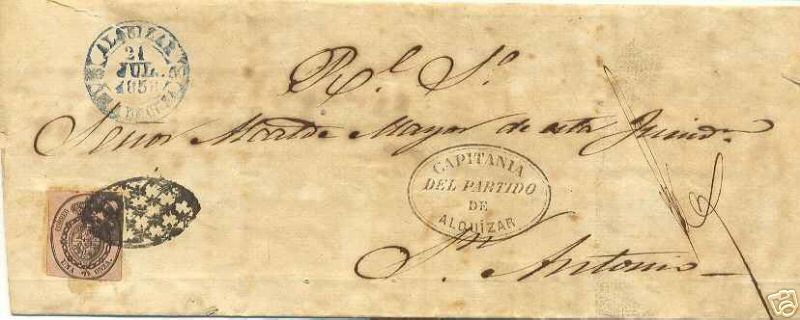 ALQUIZAR
21
JUL.
1858
R.l S.o
Señor Alcalde Mayor de esta Jurisdn.
CAPITANIA
DEL PARTIDO
DE
ALQUÍZAR
Sn. Antonio
CORREO
UNA ONZA